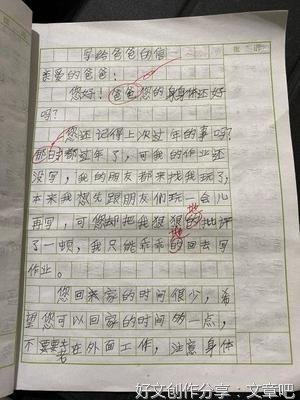 写给爸爸的信
亲爱的爸爸：
您好！爸爸您的身体还好
吗？
您还记得上次过年的事吗？
那时都过年了，可我的作业还
没写，我的朋友都来找我玩了，
本来我想先跟朋友们玩一会儿
再写，可您却把我狠狠的批评
地
了一顿，我只能乖乖的回去写
地
作业。
您回来家的时间很少，希
望您可以回家的时间多一点，
不要老在外面工作，注意身体
好文创作分享：文章吧